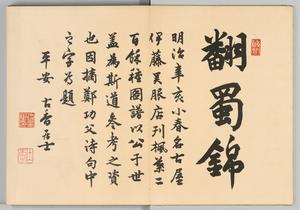 翻蜀錦
明治辛亥小春名古屋
伊藤呉服店列楓葉二
百餘種圖譜以公于世
蓋為斯道參考之資
也因摘鄭功父詩句中
之字為題
平安 古香居士